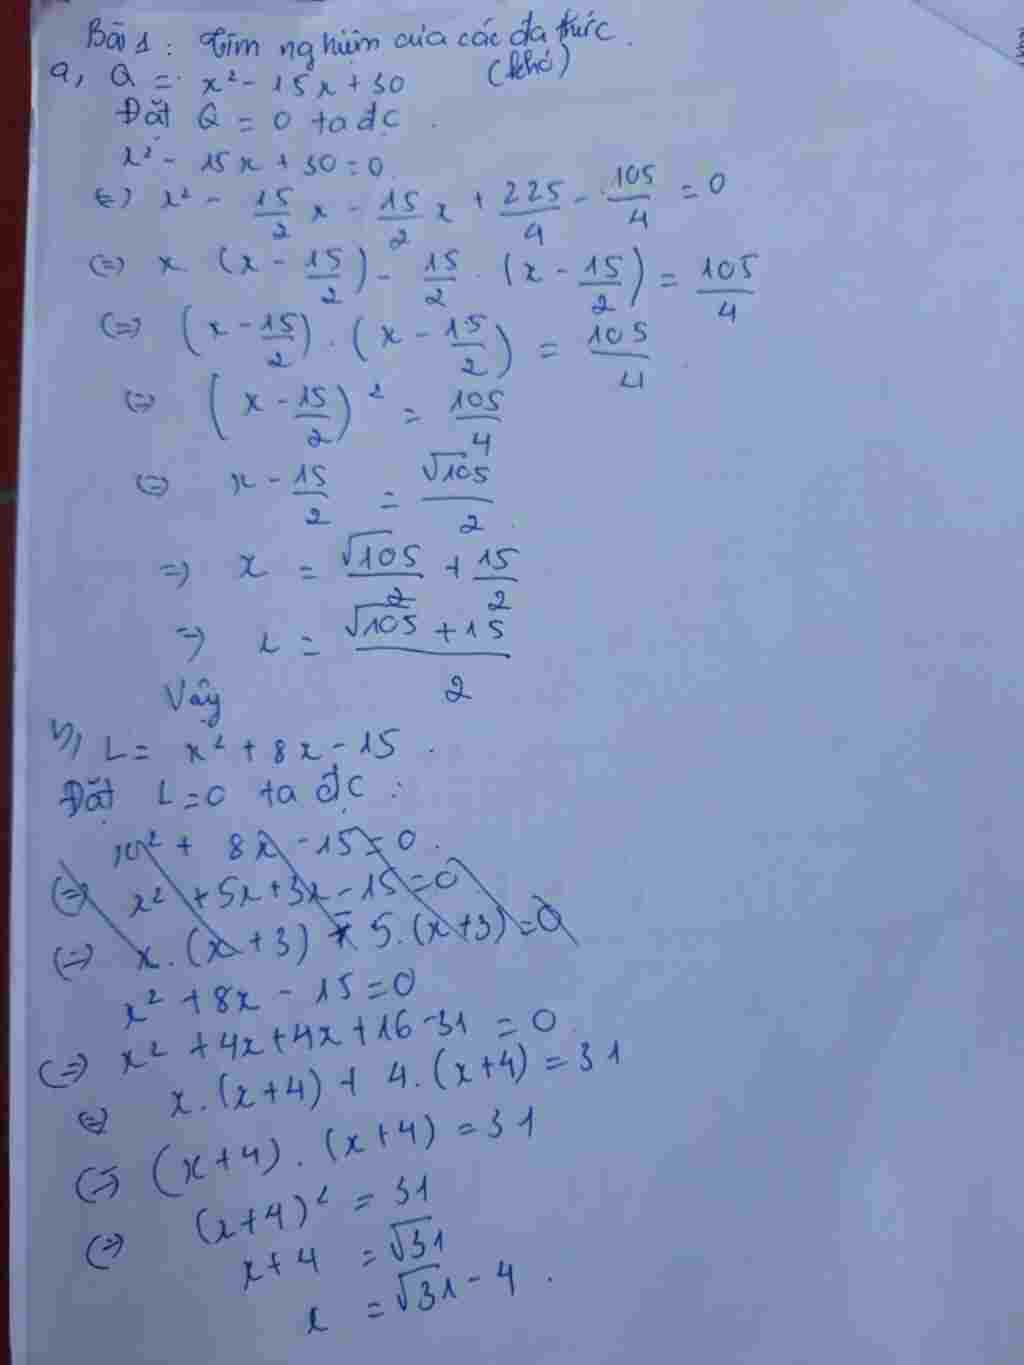 Bài 1: Tìm nghiệm của các đa thức.
(khó)
a, Q = x² - 15x + 30
Đặt Q = 0 ta đc.
x² - 15x + 30 = 0
(=) x² - 15/2 x - 15/2 x + 225/4 - 105/4 = 0
(=) x (x - 15/2) - 15/2 . (x - 15/2) = 105/4
(=) (x - 15/2) . (x - 15/2) = 105/4
(=) (x - 15/2)² = 105/4
(=) x - 15/2 = √105/2
=) x = √105/2 + 15/2
=) x = (√105 + 15)/2
Vậy
b, L = x² + 8x - 15.
Đặt L = 0 ta đc:
x² + 8x - 15 = 0.
(=) x² + 5x + 3x - 15 = 0
(=) x. (x + 3) + 5. (x + 3) = 0
x² + 8x - 15 = 0
(=) x² + 4x + 4x + 16 - 31 = 0
(=) x. (x + 4) + 4. (x + 4) = 31
(=) (x + 4) . (x + 4) = 31
(=) (x + 4)² = 31
x + 4 = √31
x = √31 - 4.